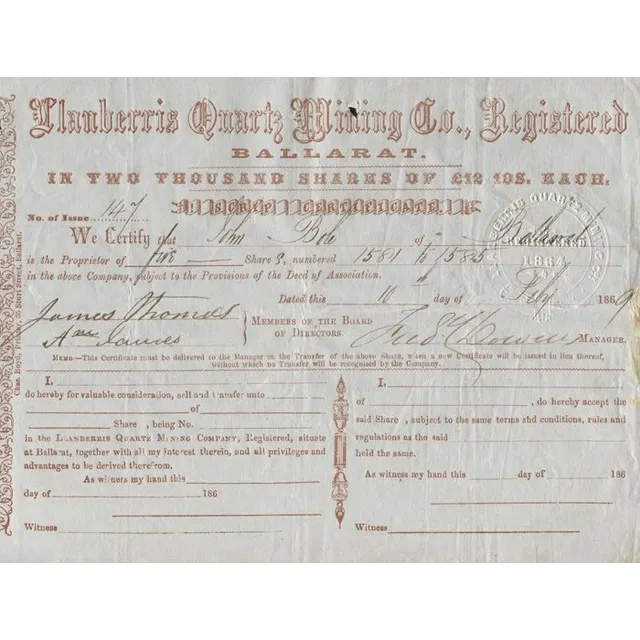 Llanberris Quartz Mining Co., Registered
BALLARAT.
IN TWO THOUSAND SHARES OF £12 10S. EACH.
SHARE CERTIFICATE
No. of Issue 147
We Certify that John Bole of Ballarat
is the Proprietor of five Shares, numbered 1581 to 1585
in the above Company, subject to the Provisions of the Deed of Association.
Dated this 10th day of Feby 1869
James Thomas
James
MEMBERS OF THE BOARD OF DIRECTORS.
MANAGER.
MEMO—This Certificate must be delivered to the Manager on the Transfer of the above Share, when a new Certificate will be issued in lieu thereof,
without which no Transfer will be recognised by the Company.
I,
do hereby for valuable consideration, sell and transfer unto
of
Share , being No.
in the LLANBERRIS QUARTZ MINING COMPANY, Registered, situate
at Ballarat, together with all my interest therein, and all privileges and
advantages to be derived therefrom.
As witness my hand this
day of 186
Witness
I,
of , do hereby accept the
said Share , subject to the same terms and conditions, rules and
regulations as the said
held the same.
As witness my hand this day of 186
Witness
Chas. Boyd, Printer, 35 Sturt Street, Ballarat.
LLANBERRIS QUARTZ MINING CO
REGISTERED
1864